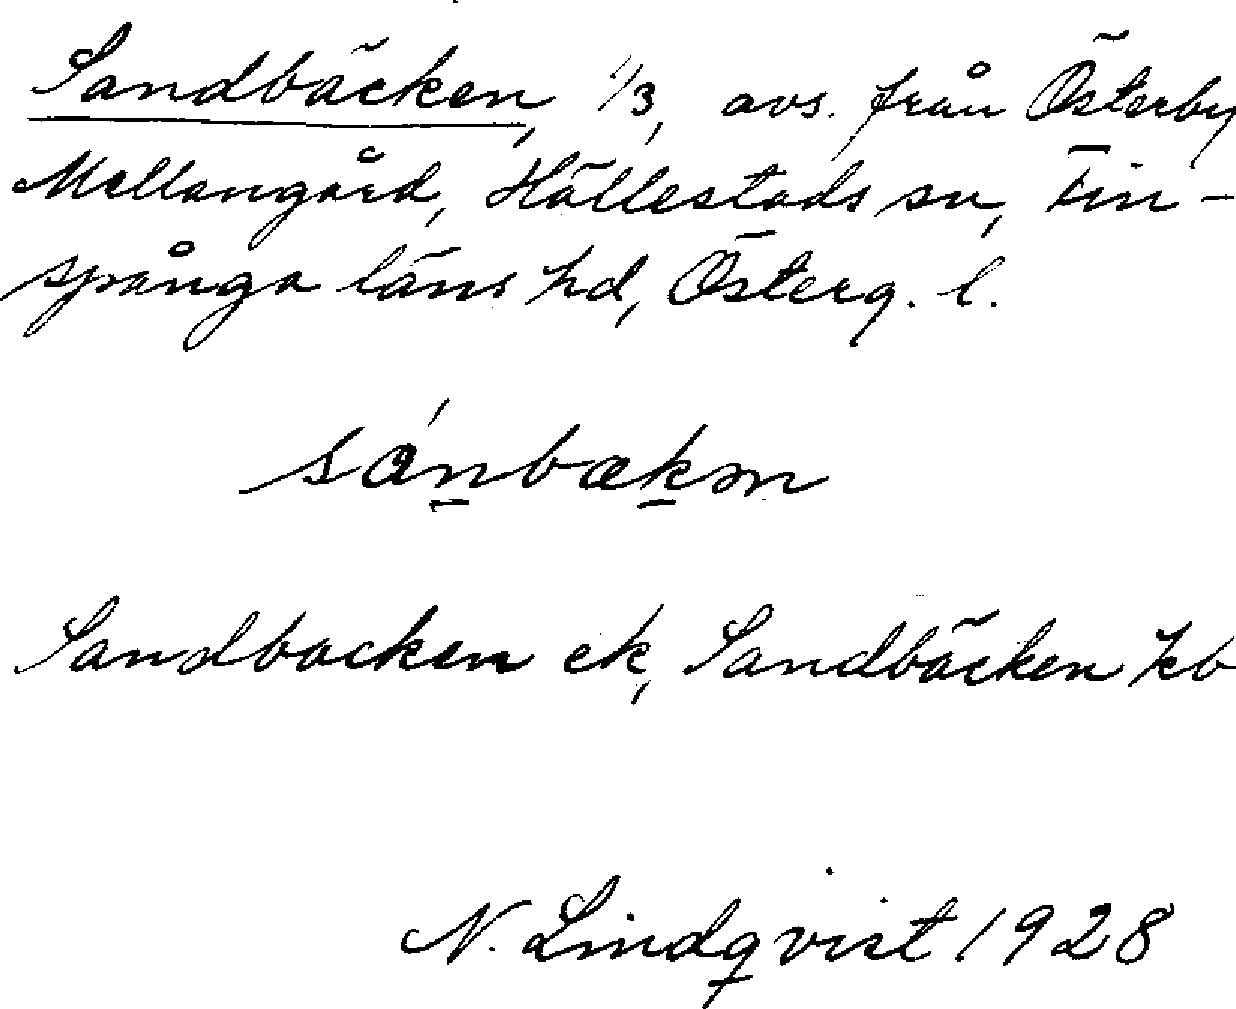 Sandbäcken, 1/3, avs. från Österby
Mellangård, Hällestads sn, Fin-
spånga läns hd, Österg. l.
sánbækən
Sandbacken ek, Sandbäcken kb
N. Lindqvist 1928